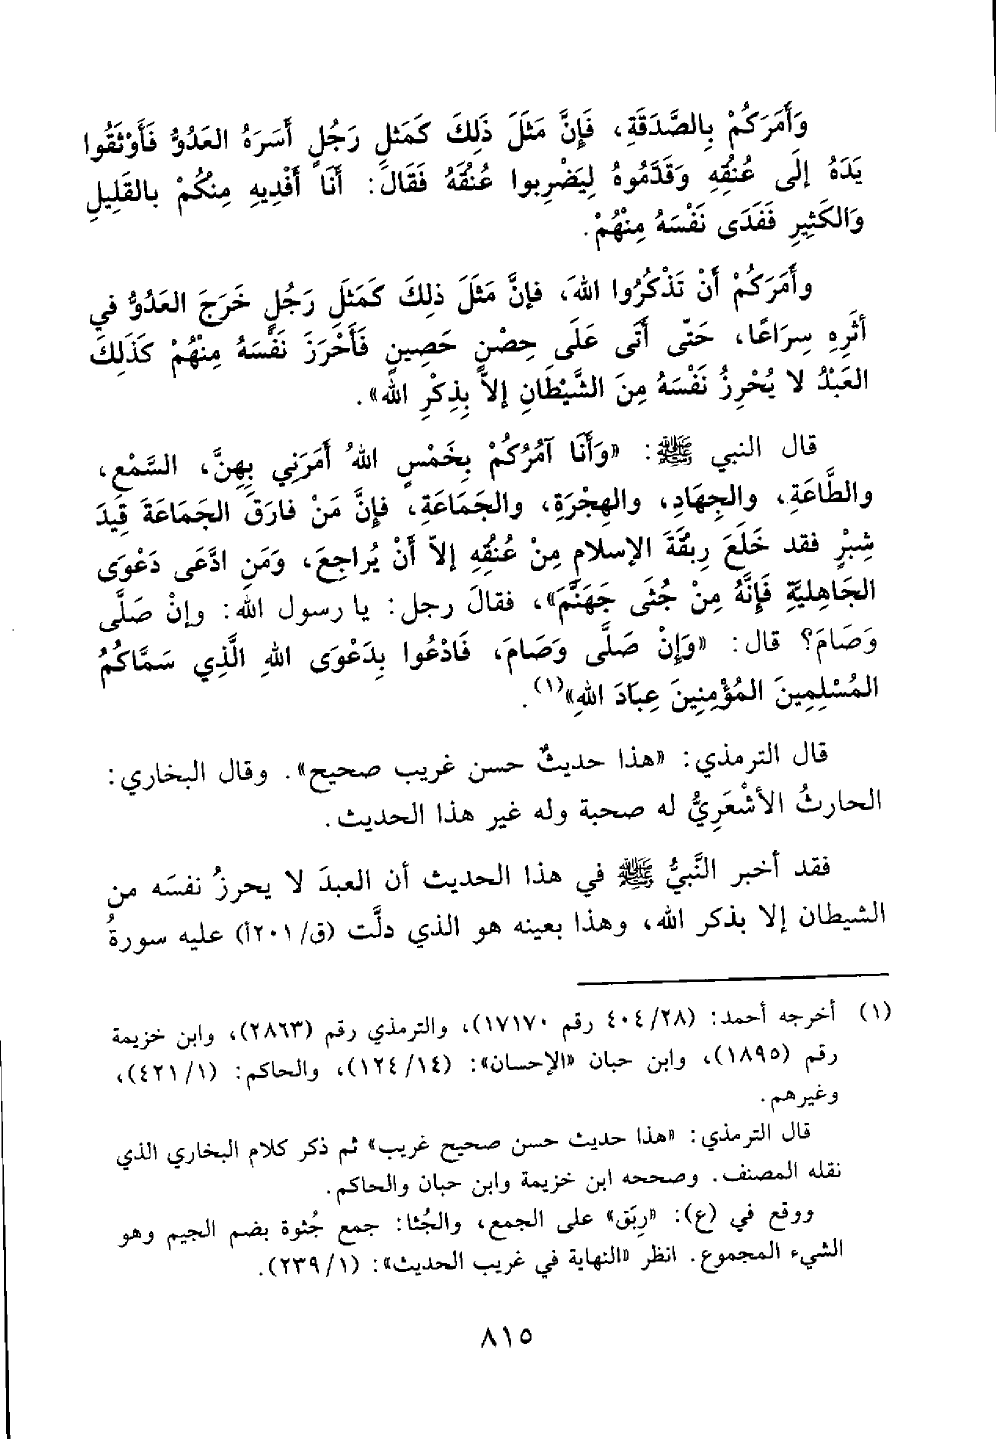 وَأَمَرَكُمْ بِالصَّدَقَةِ، فَإِنَّ مَثَلَ ذَلِكَ كَمَثلِ رَجُلٍ أَسَرَهُ العَدُوُّ فَأَوْثَقُوا
يَدَهُ إلَى عُنُقِهِ وَقَدَّمُوهُ لِيَضْرِبوا عُنُقَهُ فَقَالَ: أَنَا أَفْدِيهِ مِنكُمْ بالقَلِيلِ
وَالكَثِيرِ فَفَدَى نَفْسَهُ مِنْهُمْ.
وأَمَرَكُمْ أَنْ تَذْكُرُوا اللهَ، فإنَّ مَثَلَ ذلِكَ كَمَثَلِ رَجُلٍ خَرَجَ العَدُوُّ في
أثَرِهِ سِرَاعًا، حَتّى أَتَى عَلَى حِصْنٍ حَصِينٍ فَأَحْرَزَ نَفْسَهُ مِنْهُمْ كَذَلِكَ
العَبْدُ لا يُحْرِزُ نَفْسَهُ مِنَ الشَّيْطَانِ إلاَّ بِذِكْرِ الله».
قال النبي ﷺ: «وَأَنَا آمُرُكُمْ بِخَمْسٍ اللهُ أَمَرَنِي بِهِنَّ، السَّمْعِ،
والطَّاعَةِ، والجِهَادِ، والهِجْرَةِ، والجَمَاعَةِ، فإنَّ مَنْ فارَقَ الجَمَاعَةَ قِيَدَ
شِبْرٍ فقد خَلَعَ رِبقَةَ الإسلامِ مِنْ عُنُقِهِ إلاّ أَنْ يُراجِعَ، وَمَنِ ادَّعَى دَعْوَى
الجَاهِليَّةِ فَإِنَّهُ مِنْ جُثَى جَهَنَّمَ»، فقالَ رجل: يا رسول الله: وإنْ صَلَّى
وَصَامَ؟ قال: «وَإِنْ صَلَّى وَصَامَ، فَادْعُوا بِدَعْوَى اللهِ الَّذِي سَمَّاكُمُ
المُسْلِمِينَ المُؤْمِنِينَ عِبَادَ اللهِ»(١).
قال الترمذي: «هذا حديثٌ حسن غريب صحيح». وقال البخاري:
الحارثُ الأشْعَرِيُّ له صحبة وله غير هذا الحديث.
فقد أخبر النَّبيُّ ﷺ في هذا الحديث أن العبدَ لا يحرزُ نفسَه من
الشيطان إلا بذكر الله، وهذا بعينه هو الذي دلَّت (ق/٢٠١أ) عليه سورةُ
(١) أخرجه أحمد: (٤٠٤/٢٨ رقم ١٧١٧٠)، والترمذي رقم (٢٨٦٣)، وابن خزيمة
رقم (١٨٩٥)، وابن حبان «الإحسان»: (١٢٤/١٤)، والحاكم: (٤٢١/١)،
وغيرهم.
قال الترمذي: «هذا حديث حسن صحيح غريب» ثم ذكر كلام البخاري الذي
نقله المصنف. وصححه ابن خزيمة وابن حبان والحاكم.
ووقع في (ع): «رِبَق» على الجمع، والجُثا: جمع جُثوة بضم الجيم وهو
الشيء المجموع. انظر «النهاية في غريب الحديث»: (٢٣٩/١).
٨١٥